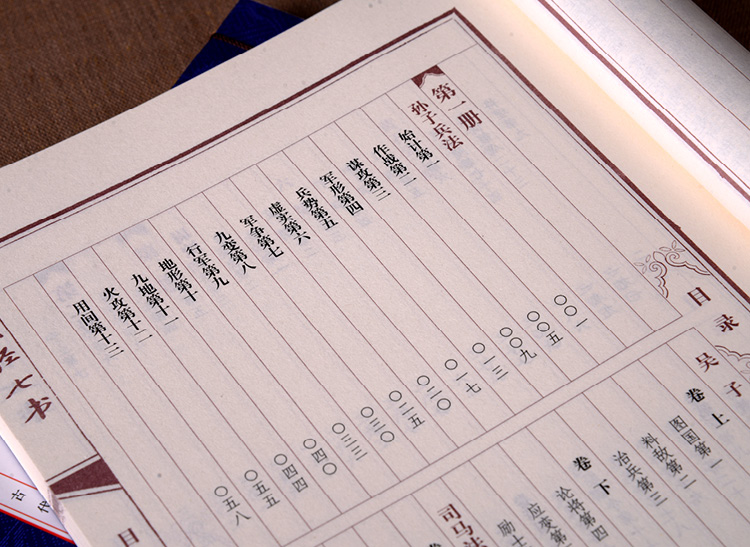 目录
第一册
孙子兵法
始计第一 〇〇一
作战第二 〇〇五
谋攻第三 〇〇九
军形第四 〇一三
兵势第五 〇一七
虚实第六 〇二〇
军争第七 〇二五
九变第八 〇三〇
行军第九 〇三三
地形第十 〇四〇
九地第十一 〇四四
火攻第十二 〇五五
用间第十三 〇五八
吴子
卷上
图国第一
料敌第二
治兵第三
卷下
论将第四
应变第
励士
司马法
七书
目
古代